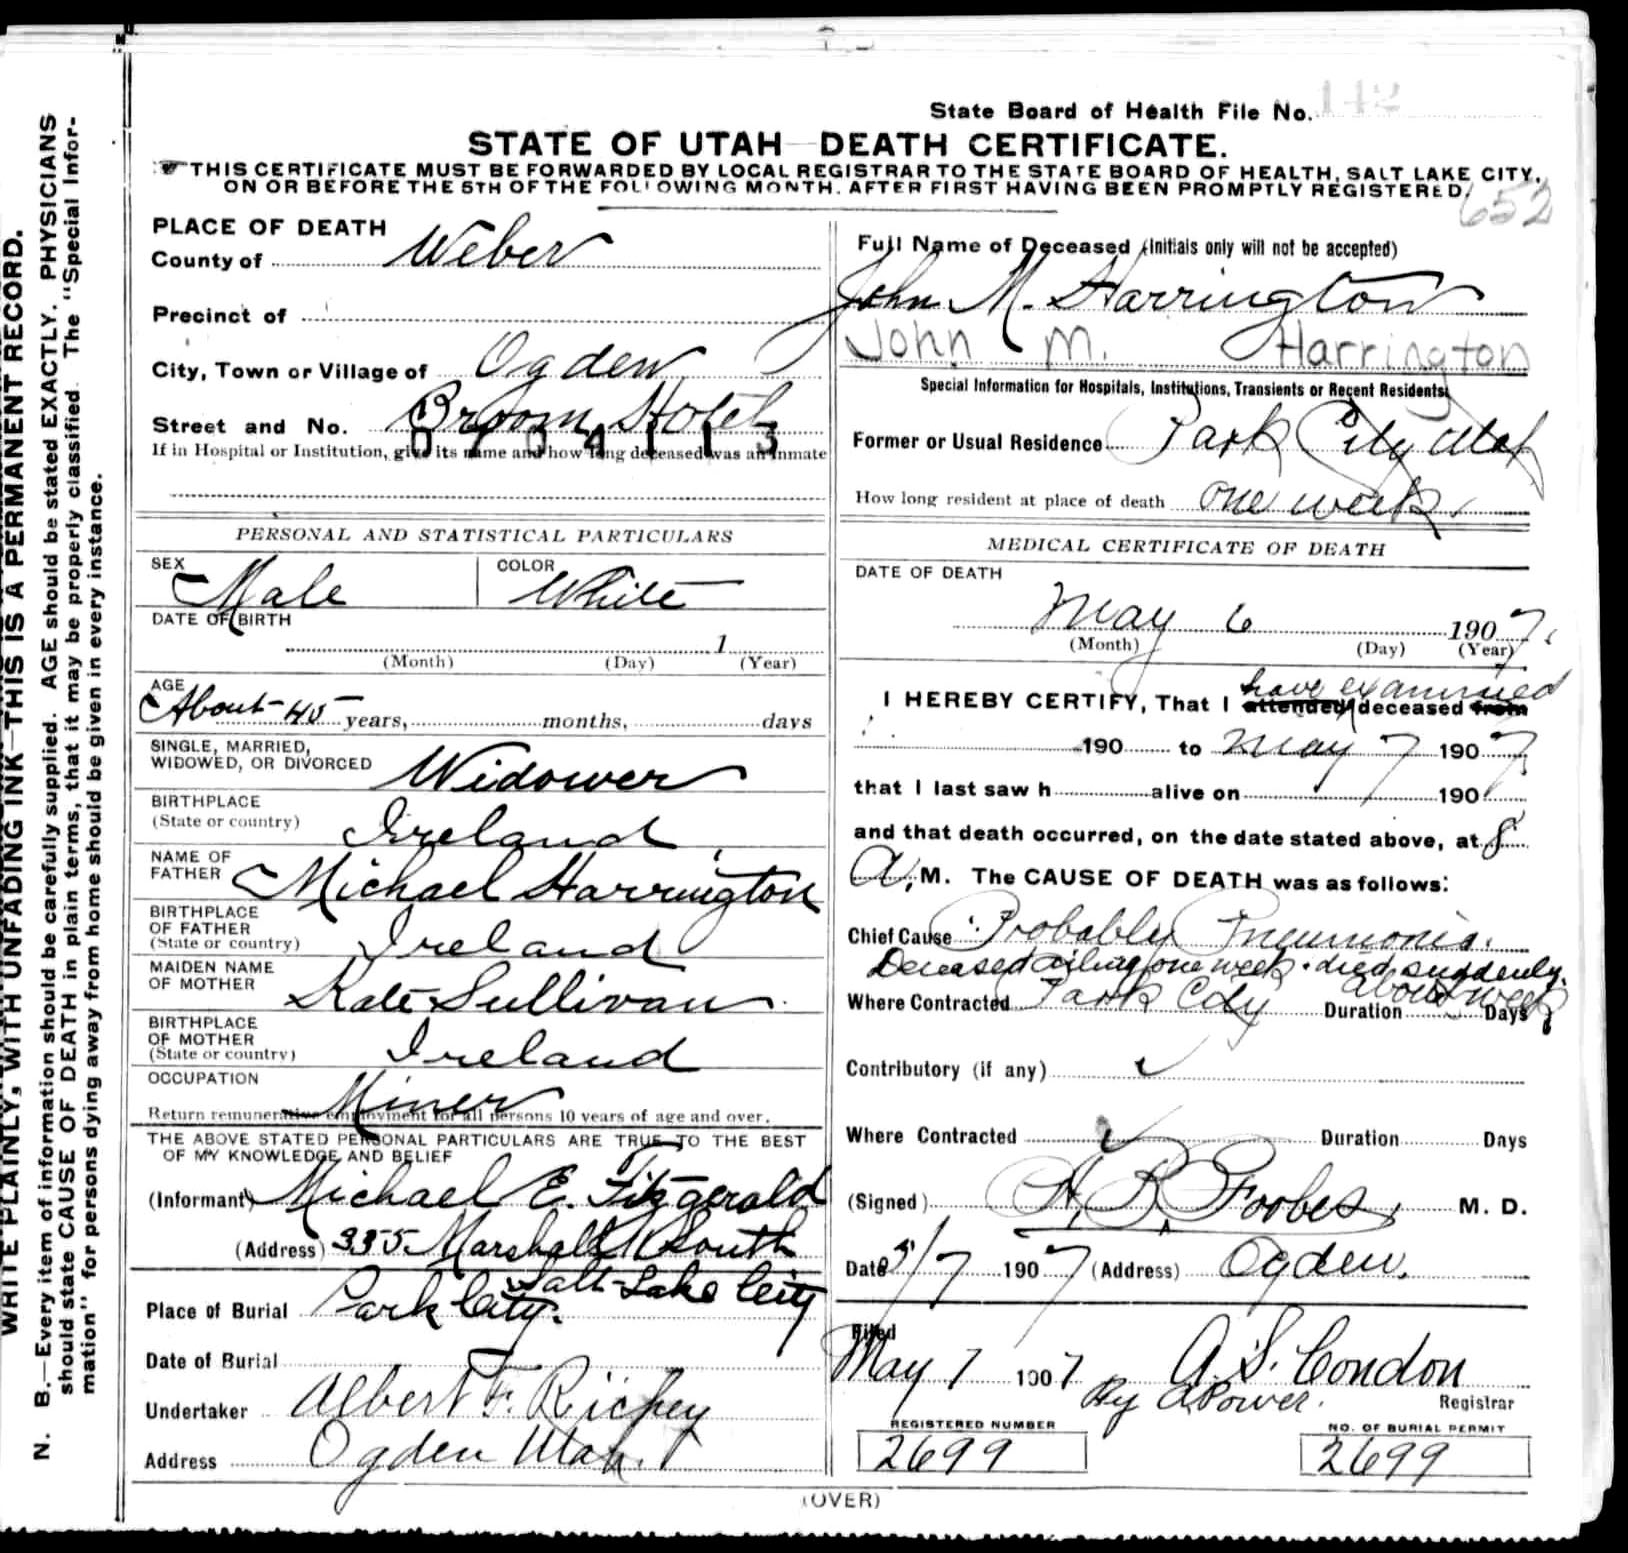 State Board of Health File No. 142
STATE OF UTAH—DEATH CERTIFICATE.
THIS CERTIFICATE MUST BE FORWARDED BY LOCAL REGISTRAR TO THE STATE BOARD OF HEALTH, SALT LAKE CITY,
ON OR BEFORE THE 5TH OF THE FOLLOWING MONTH, AFTER FIRST HAVING BEEN PROMPTLY REGISTERED.
652
WRITE PLAINLY, WITH UNFADING INK—THIS IS A PERMANENT RECORD.
N. B.—Every item of information should be carefully supplied. AGE should be stated EXACTLY. PHYSICIANS
should state CAUSE OF DEATH in plain terms, that it may be properly classified. The "Special Infor-
mation" for persons dying away from home should be given in every instance.
PLACE OF DEATH
County of Weber
Precinct of
City, Town or Village of Ogden
Street and No. Broom Hotel
0704113
If in Hospital or Institution, give its name and how long deceased was an inmate
PERSONAL AND STATISTICAL PARTICULARS
SEX Male
COLOR White
DATE OF BIRTH
1
(Month) (Day) (Year)
AGE
About 45 years, months, days
SINGLE, MARRIED,
WIDOWED, OR DIVORCED Widower
BIRTHPLACE
(State or country) Ireland
NAME OF
FATHER Michael Harrington
BIRTHPLACE
OF FATHER
(State or country) Ireland
MAIDEN NAME
OF MOTHER Kate Sullivan
BIRTHPLACE
OF MOTHER
(State or country) Ireland
OCCUPATION Miner
Return remunerative employment for all persons 10 years of age and over.
THE ABOVE STATED PERSONAL PARTICULARS ARE TRUE TO THE BEST
OF MY KNOWLEDGE AND BELIEF
(Informant) Michael E. Fitzgerald
(Address) 335 Marshall South
Salt Lake City
Place of Burial Park City.
Date of Burial
Undertaker Albert F. Richey
Address Ogden Utah.
Full Name of Deceased (Initials only will not be accepted)
John M. Harrington
John M. Harrington
Special Information for Hospitals, Institutions, Transients or Recent Residents
Former or Usual Residence Park City Utah
How long resident at place of death one week.
MEDICAL CERTIFICATE OF DEATH
DATE OF DEATH
May 6 1907.
(Month) (Day) (Year)
have examined
I HEREBY CERTIFY, That I attended deceased from
190 to May 7 1907
that I last saw h alive on 190
and that death occurred, on the date stated above, at 8
A. M. The CAUSE OF DEATH was as follows:
Chief Cause Probably Pneumonia.
Deceased ailing one week. died suddenly.
about week
Where Contracted Park City Duration Days
Contributory (if any)
Where Contracted Duration Days
(Signed) H. R. Foobes M. D.
Date 5/7 1907 (Address) Ogden.
Filed
May 7 1907 A. S. Condon
By A Power. Registrar
REGISTERED NUMBER
2699
NO. OF BURIAL PERMIT
2699
(OVER)